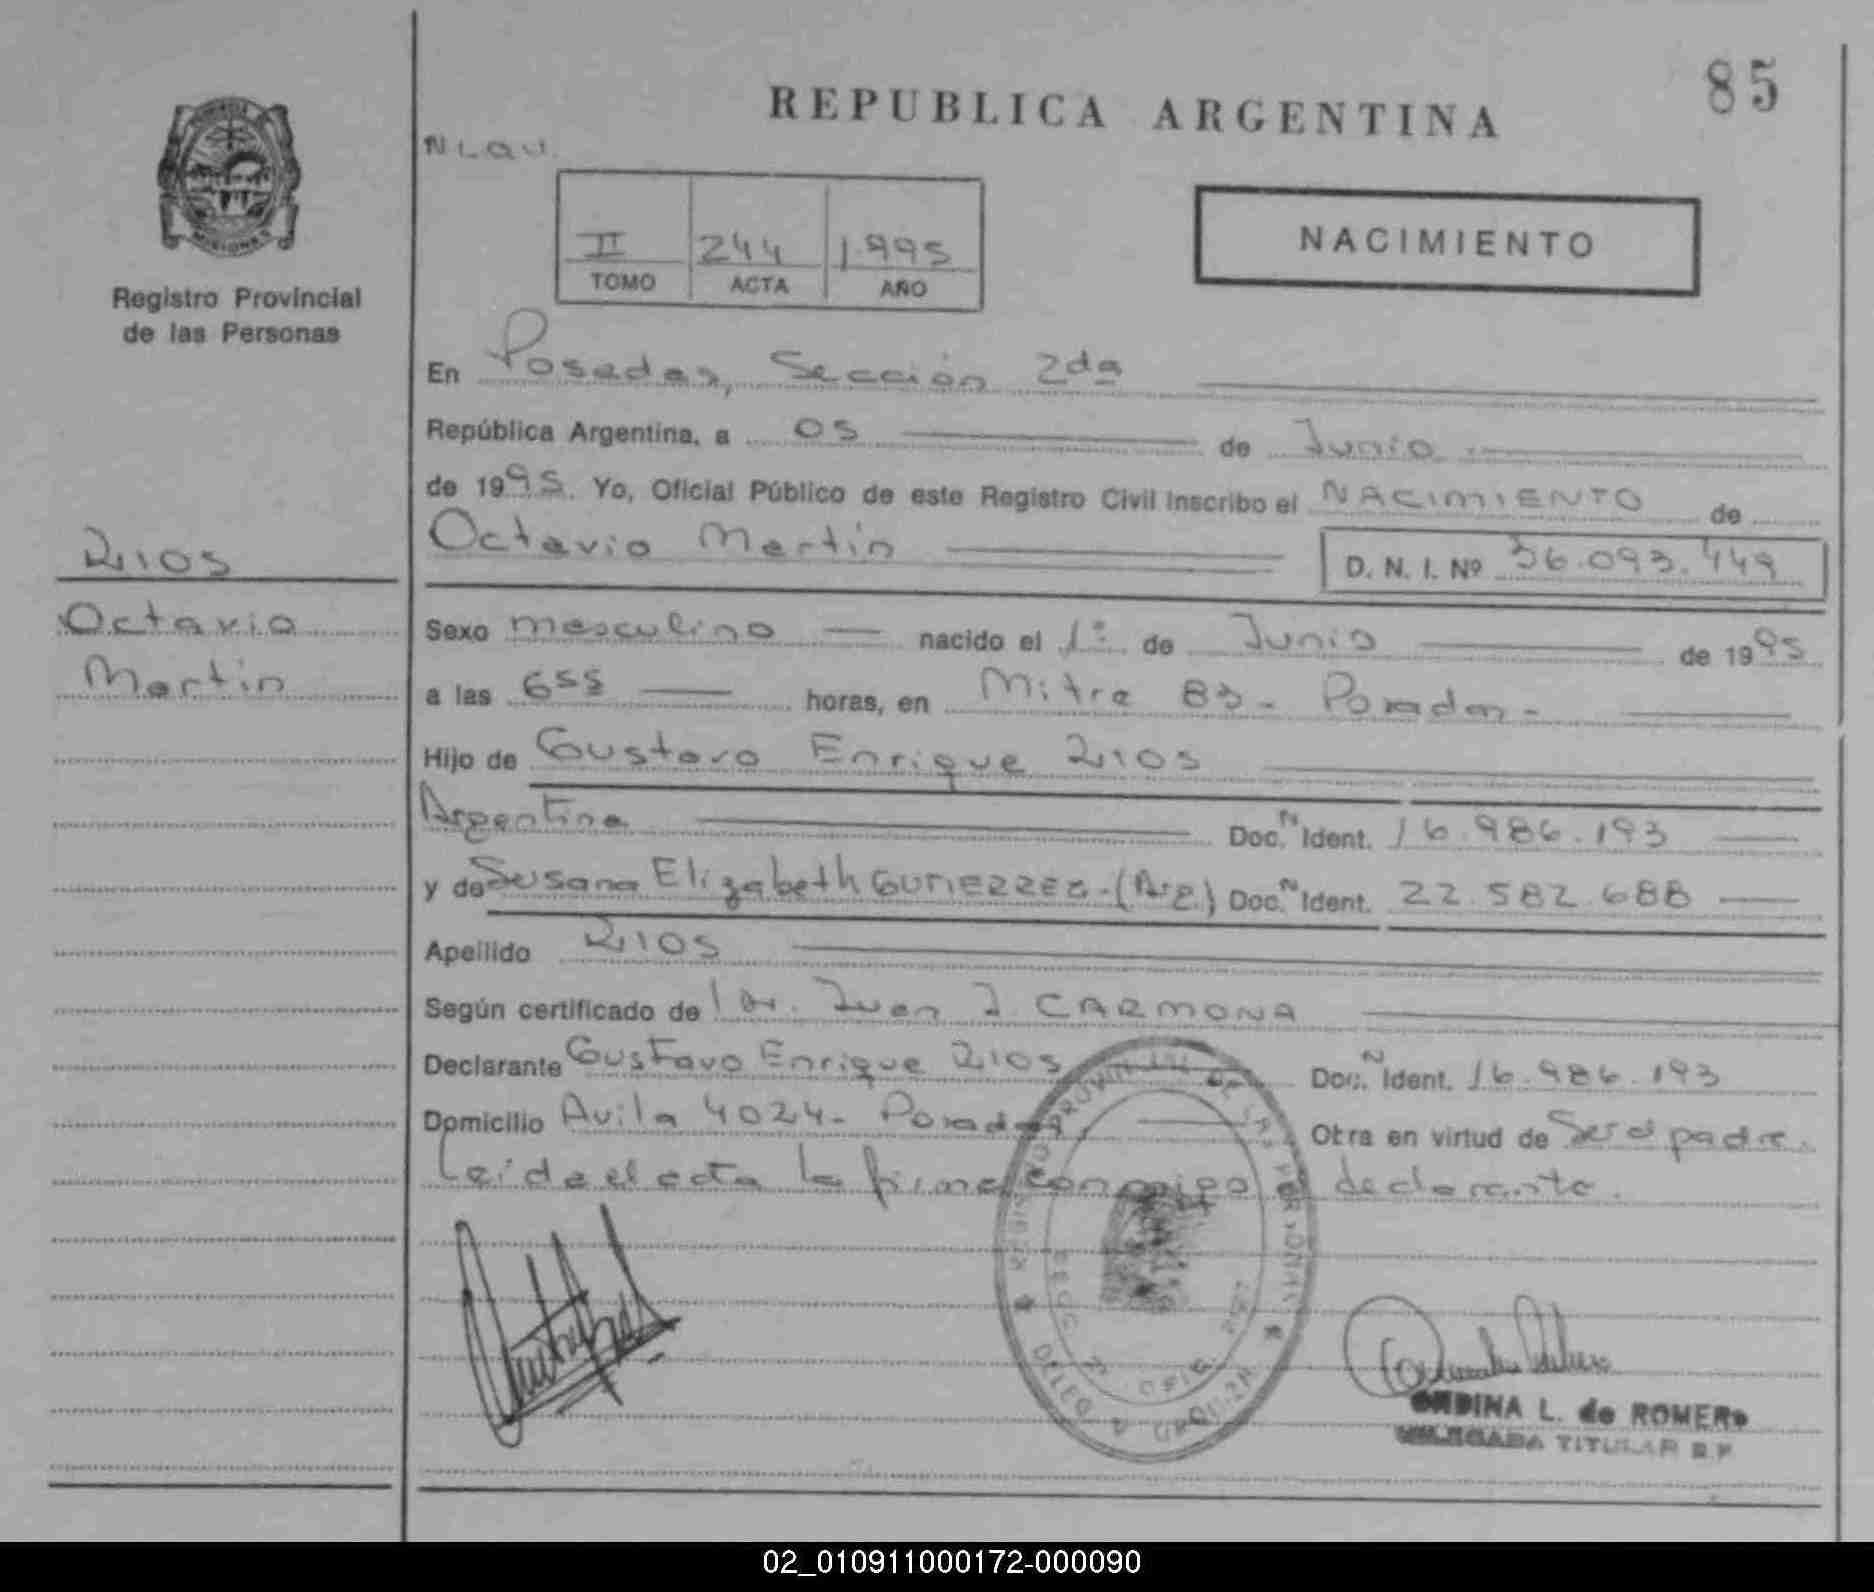 85
REPUBLICA ARGENTINA
MISIONES
Registro Provincial
de las Personas
II 244 1.995
TOMO ACTA AÑO
NACIMIENTO
En Posadas, Sección 2da
República Argentina, a 05 de Junio
de 1995. Yo, Oficial Público de este Registro Civil inscribo el NACIMIENTO de
Octavio Martín
D. N. I. Nº 36.093.449
RIOS
Octavio
Martín
Sexo masculino nacido el 1º de Junio de 1995
a las 6 55 horas, en Mitre 83 - Posadas -
Hijo de Gustavo Enrique RIOS
Argentina Doc. N Ident. 16.986.193
y de Susana Elizabeth GUTIERREZ - (Arg.) Doc. N Ident. 22.582.688
Apellido RIOS
Según certificado de Dr. Juan J. CARMONA
Declarante Gustavo Enrique RIOS Doc. N Ident. 16.986.193
Domicilio Avila 4024 - Posadas Otra en virtud de Ser el padre.
Leída el acta la firma conmigo el declarante.
REGISTRO PROVINCIAL DE LAS PERSONAS
L. de ROMERO
TITULAR
02_010911000172-000090